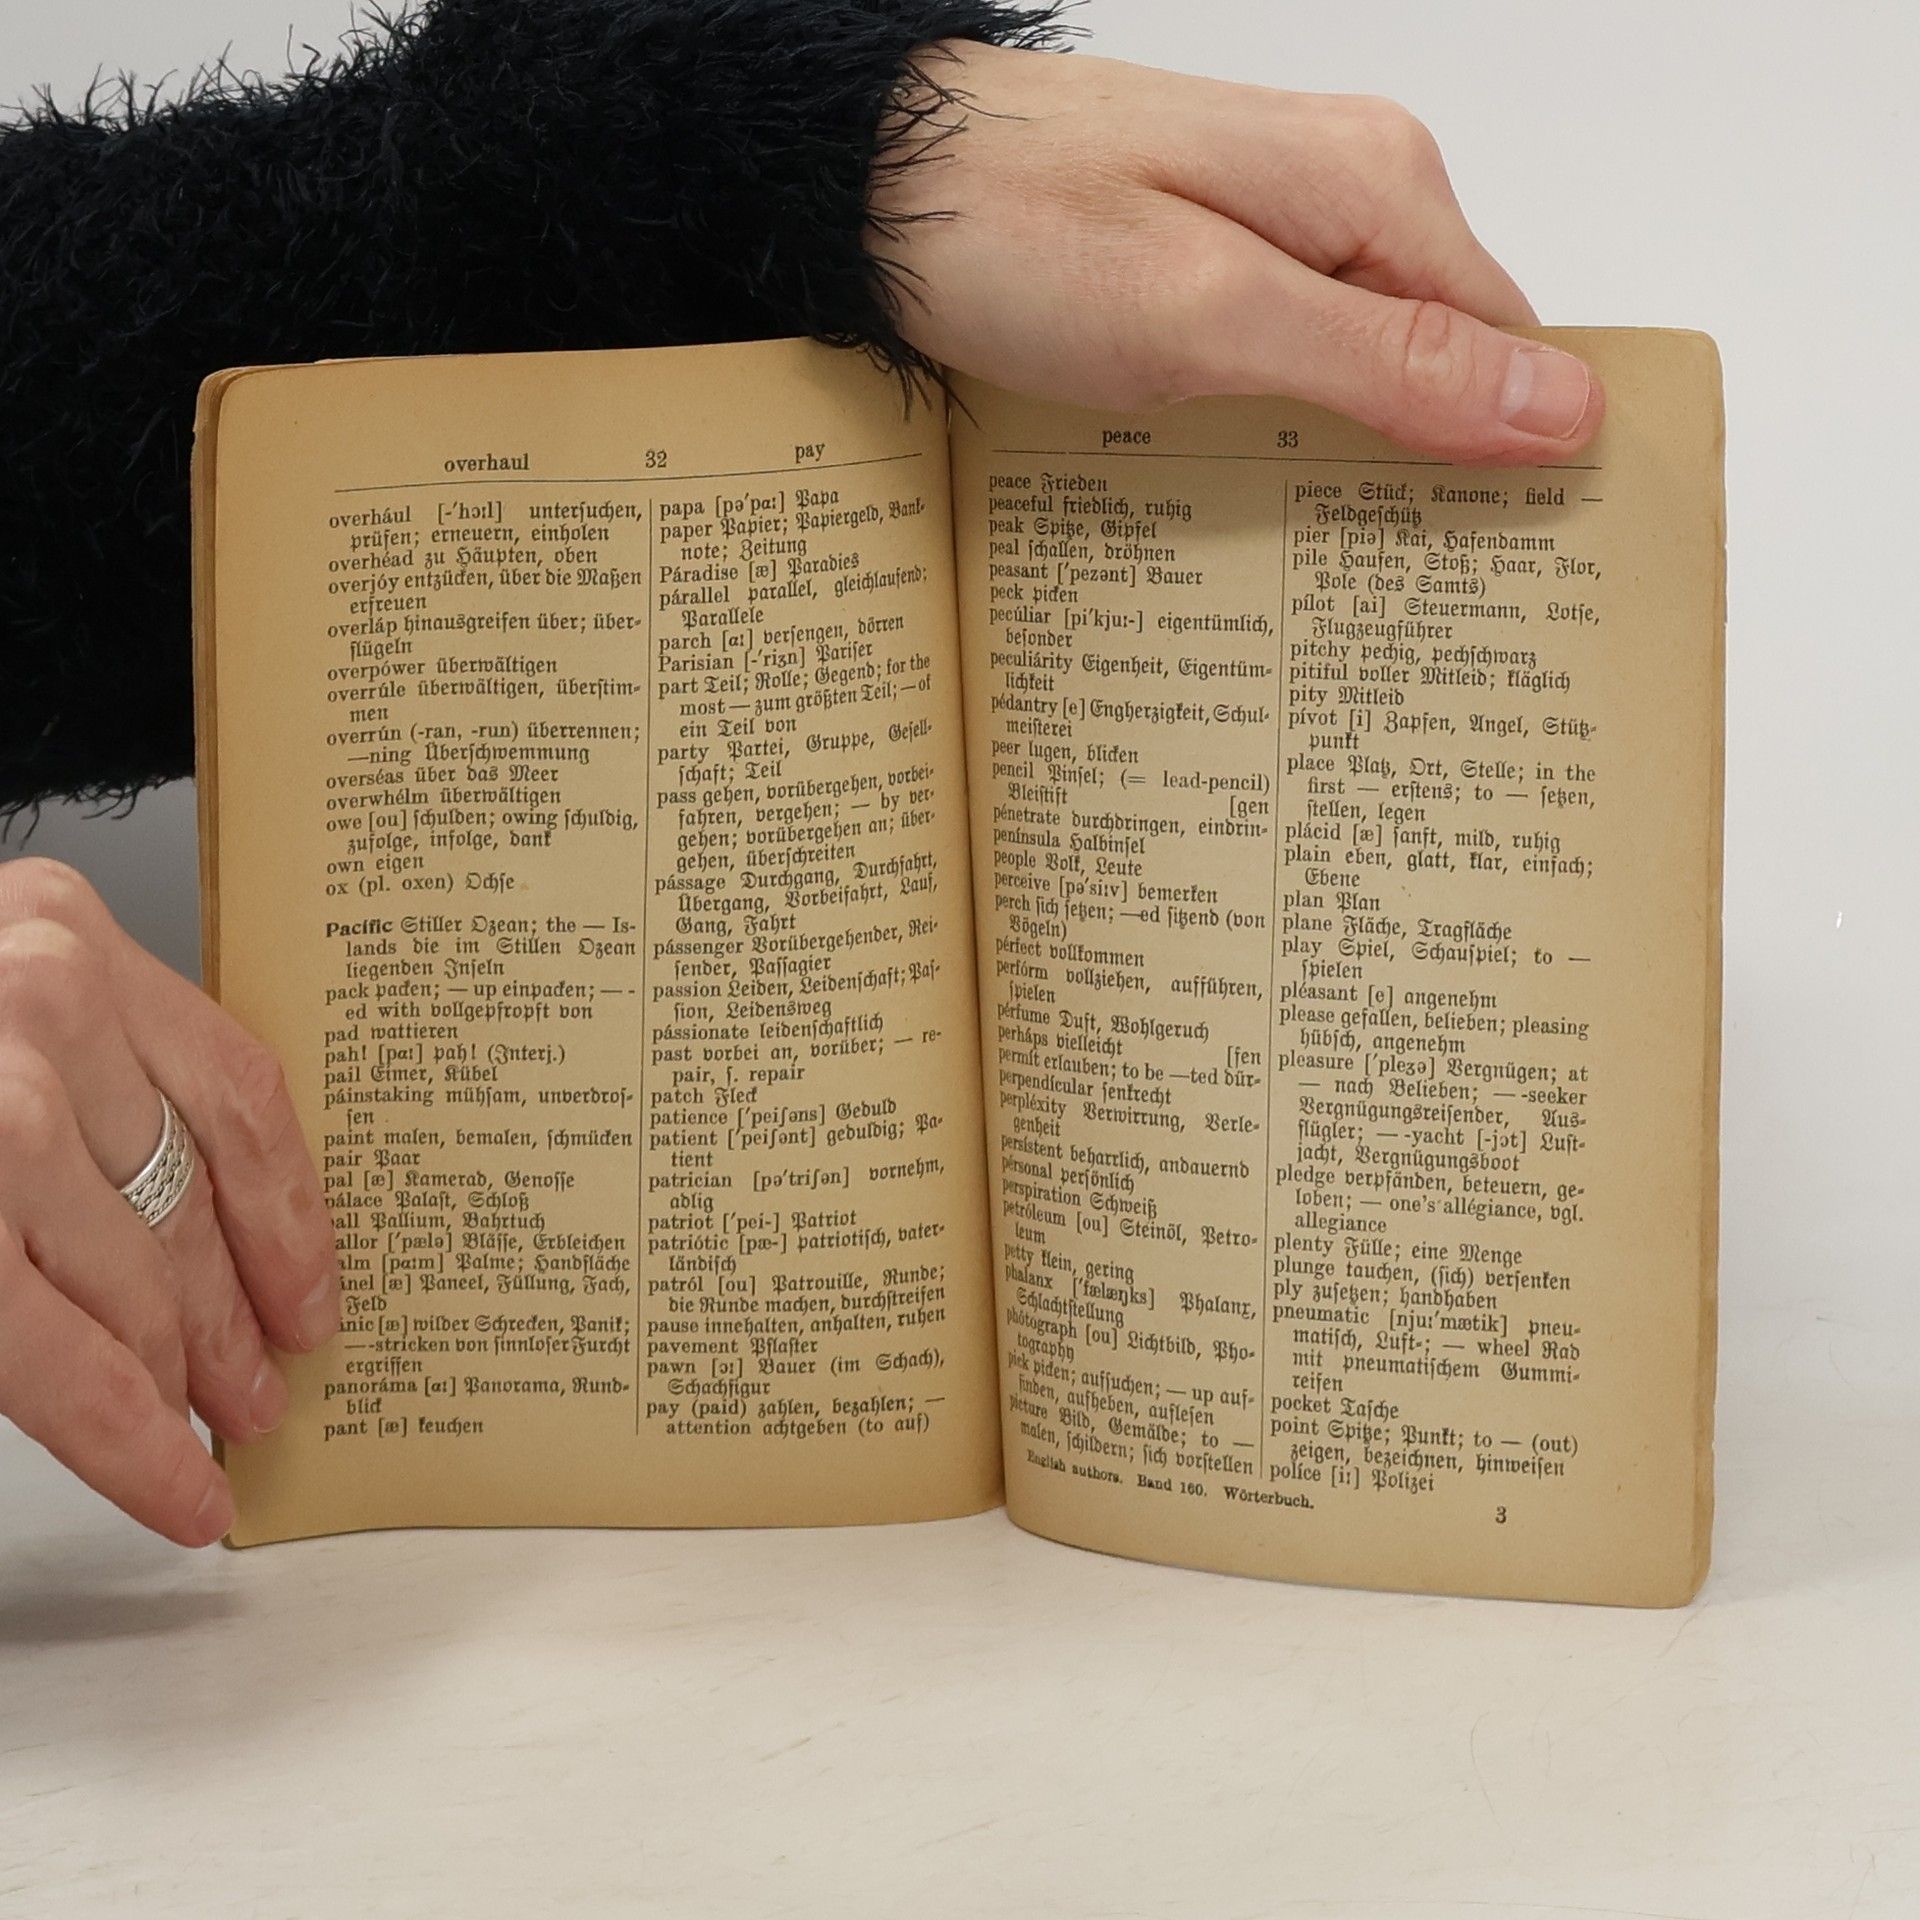 overhaul 32 pay
overhául [-'hɔːl] untersuchen,
prüfen; erneuern, einholen
overhéad zu Häupten, oben
overjóy entzücken, über die Maßen
erfreuen
overláp hinausgreifen über; über-
flügeln
overpówer überwältigen
overrúle überwältigen, überstim-
men
overrún (-ran, -run) überrennen;
—ning Überschwemmung
overséas über das Meer
overwhélm überwältigen
owe [ou] schulden; owing schuldig,
zufolge, infolge, dank
own eigen
ox (pl. oxen) Ochse
Pacífic Stiller Ozean; the — Is-
lands die im Stillen Ozean
liegenden Inseln
pack packen; — up einpacken; — -
ed with vollgepfropft von
pad wattieren
pah! [pɑː] pah! (Interj.)
pail Eimer, Kübel
páinstaking mühsam, unverdros-
sen
paint malen, bemalen, schmücken
pair Paar
pal [æ] Kamerad, Genosse
pálace Palast, Schloß
all Pallium, Bahrtuch
allor ['pælə] Blässe, Erbleichen
alm [pɑːm] Palme; Handfläche
ánel [æ] Paneel, Füllung, Fach,
Feld
ánic [æ] wilder Schrecken, Panik;
—-stricken von sinnloser Furcht
ergriffen
panoráma [ɑː] Panorama, Rund-
blick
pant [æ] keuchen
papa [pə'pɑː] Papa
paper Papier; Papiergeld, Bank-
note; Zeitung
Páradise [æ] Paradies
párallel parallel, gleichlaufend;
Parallele
parch [ɑː] versengen, dörren
Parisian [-'rizn] Pariser
part Teil; Rolle; Gegend; for the
most — zum größten Teil; — of
ein Teil von
party Partei, Gruppe, Gesell-
schaft; Teil
pass gehen, vorübergehen, vorbei-
fahren, vergehen; — by ver-
gehen; vorübergehen an; über-
gehen, überschreiten
pássage Durchgang, Durchfahrt,
Übergang, Vorbeifahrt, Lauf,
Gang, Fahrt
pássenger Vorübergehender, Rei-
sender, Passagier
passion Leiden, Leidenschaft; Pas-
sion, Leidensweg
pássionate leidenschaftlich
past vorbei an, vorüber; — re-
pair, s. repair
patch Fleck
patience ['peiʃəns] Geduld
patient ['peiʃənt] geduldig; Pa-
tient
patrician [pə'triʃən] vornehm,
adlig
patriot ['pei-] Patriot
patriótic [pæ-] patriotisch, vater-
ländisch
patról [ou] Patrouille, Runde;
die Runde machen, durchstreifen
pause innehalten, anhalten, ruhen
pavement Pflaster
pawn [ɔː] Bauer (im Schach),
Schachfigur
pay (paid) zahlen, bezahlen; —
attention achtgeben (to auf)
peace 33
peace Frieden
peaceful friedlich, ruhig
peak Spitze, Gipfel
peal schallen, dröhnen
peasant ['pezənt] Bauer
peck picken
pecúliar [pi'kjuː-] eigentümlich,
besonder
peculiárity Eigenheit, Eigentüm-
lichkeit
pédantry [e] Engherzigkeit, Schul-
meisterei
peer lugen, blicken
pencil Pinsel; (= lead-pencil)
Bleistift [gen
pénetrate durchdringen, eindrin-
península Halbinsel
people Volk, Leute
perceive [pə'siːv] bemerken
perch sich setzen; —ed sitzend (von
Vögeln)
pérfect vollkommen
perfórm vollziehen, aufführen,
spielen
pérfume Duft, Wohlgeruch
perháps vielleicht [fen
permít erlauben; to be —ted dür-
perpendícular senkrecht
perpléxity Verwirrung, Verle-
genheit
persístent beharrlich, andauernd
pérsonal persönlich
perspiration Schweiß
petróleum [ou] Steinöl, Petro-
leum
petty klein, gering
phalanx ['fælæŋks] Phalanx,
Schlachtstellung
phótograph [ou] Lichtbild, Pho-
tography
pick picken; aufsuchen; — up auf-
finden, aufheben, auflesen
picture Bild, Gemälde; to —
malen, schildern; sich vorstellen
piece Stück; Kanone; field —
Feldgeschütz
pier [piə] Kai, Hafendamm
pile Haufen, Stoß; Haar, Flor,
Pole (des Samts)
pílot [ai] Steuermann, Lotse,
Flugzeugführer
pitchy pechig, pechschwarz
pitiful voller Mitleid; kläglich
pity Mitleid
pívot [i] Zapfen, Angel, Stütz-
punkt
place Platz, Ort, Stelle; in the
first — erstens; to — setzen,
stellen, legen
plácid [æ] sanft, mild, ruhig
plain eben, glatt, klar, einfach;
Ebene
plan Plan
plane Fläche, Tragfläche
play Spiel, Schauspiel; to —
spielen
pléasant [e] angenehm
please gefallen, belieben; pleasing
hübsch, angenehm
pleasure ['pleʒə] Vergnügen; at
— nach Belieben; —-seeker
Vergnügungsreisender, Aus-
flügler; —-yacht [-jɔt] Lust-
jacht, Vergnügungsboot
pledge verpfänden, beteuern, ge-
loben; — one's allégiance, vgl.
allegiance
plenty Fülle; eine Menge
plunge tauchen, (sich) versenken
ply zusetzen; handhaben
pneumatic [njuː'mætik] pneu-
matisch, Luft-; — wheel Rad
mit pneumatischem Gummi-
reifen
pocket Tasche
point Spitze; Punkt; to — (out)
zeigen, bezeichnen, hinweisen
políce [iː] Polizei
English authors. Band 160. Wörterbuch.
3